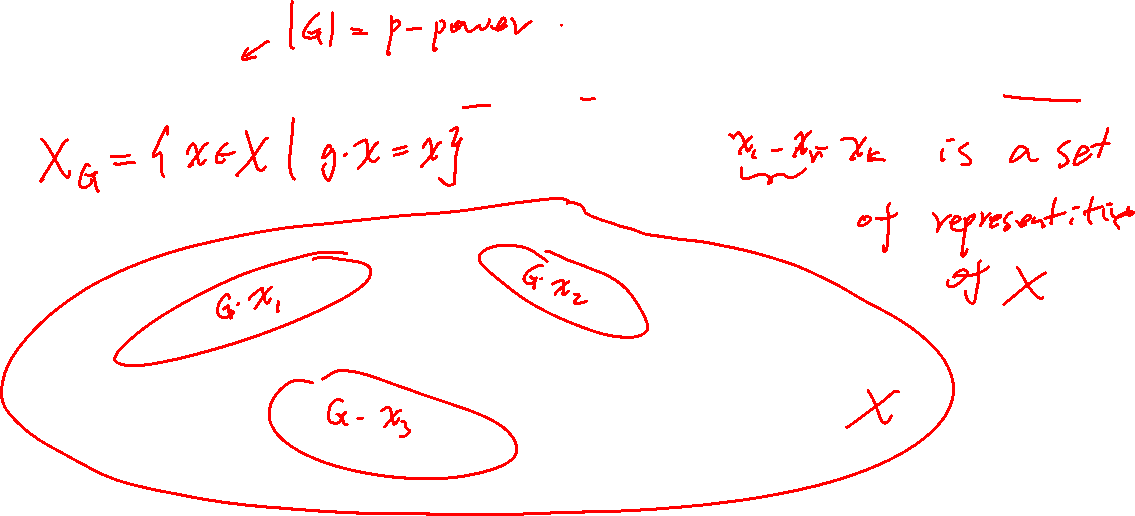 |G| = p-power.
X_G = { x ∈ X | g·x = x }
x_1 - x_n - x_k is a set
of representitive
of X
G·x_1
G·x_2
G-x_3
X